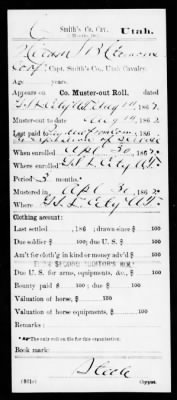 C Smith's Co. Cav. Utah.
(90 Days, 1862.)
Corp., Capt. Smith's Co., Utah Cavalry.
Age years.
Appears on Co. Muster-out Roll, dated
G. S. L. City U.T. Aug 14, 1862.
Muster-out to date Aug 14, 1862.
Last paid
When enrolled Apl 30, 1862.
Where enrolled G. S. L. City U.T.
Period 3 months.
Mustered in Apl 30, 1862.
Where G. S. L. City U.T.
Clothing account:
Last settled , 186 ; drawn since $ 100
Due soldier $ 100; due U. S. $ 100
Am't for cloth'g in kind or money adv'd $ 100
Due U. S. for arms, equipments, &c., $ 100
Bounty paid $ 100; due $ 100
Valuation of horse, $ 100
Valuation of horse equipments, $ 100
Remarks:
Book mark:
Steele
(361c) Copyist.